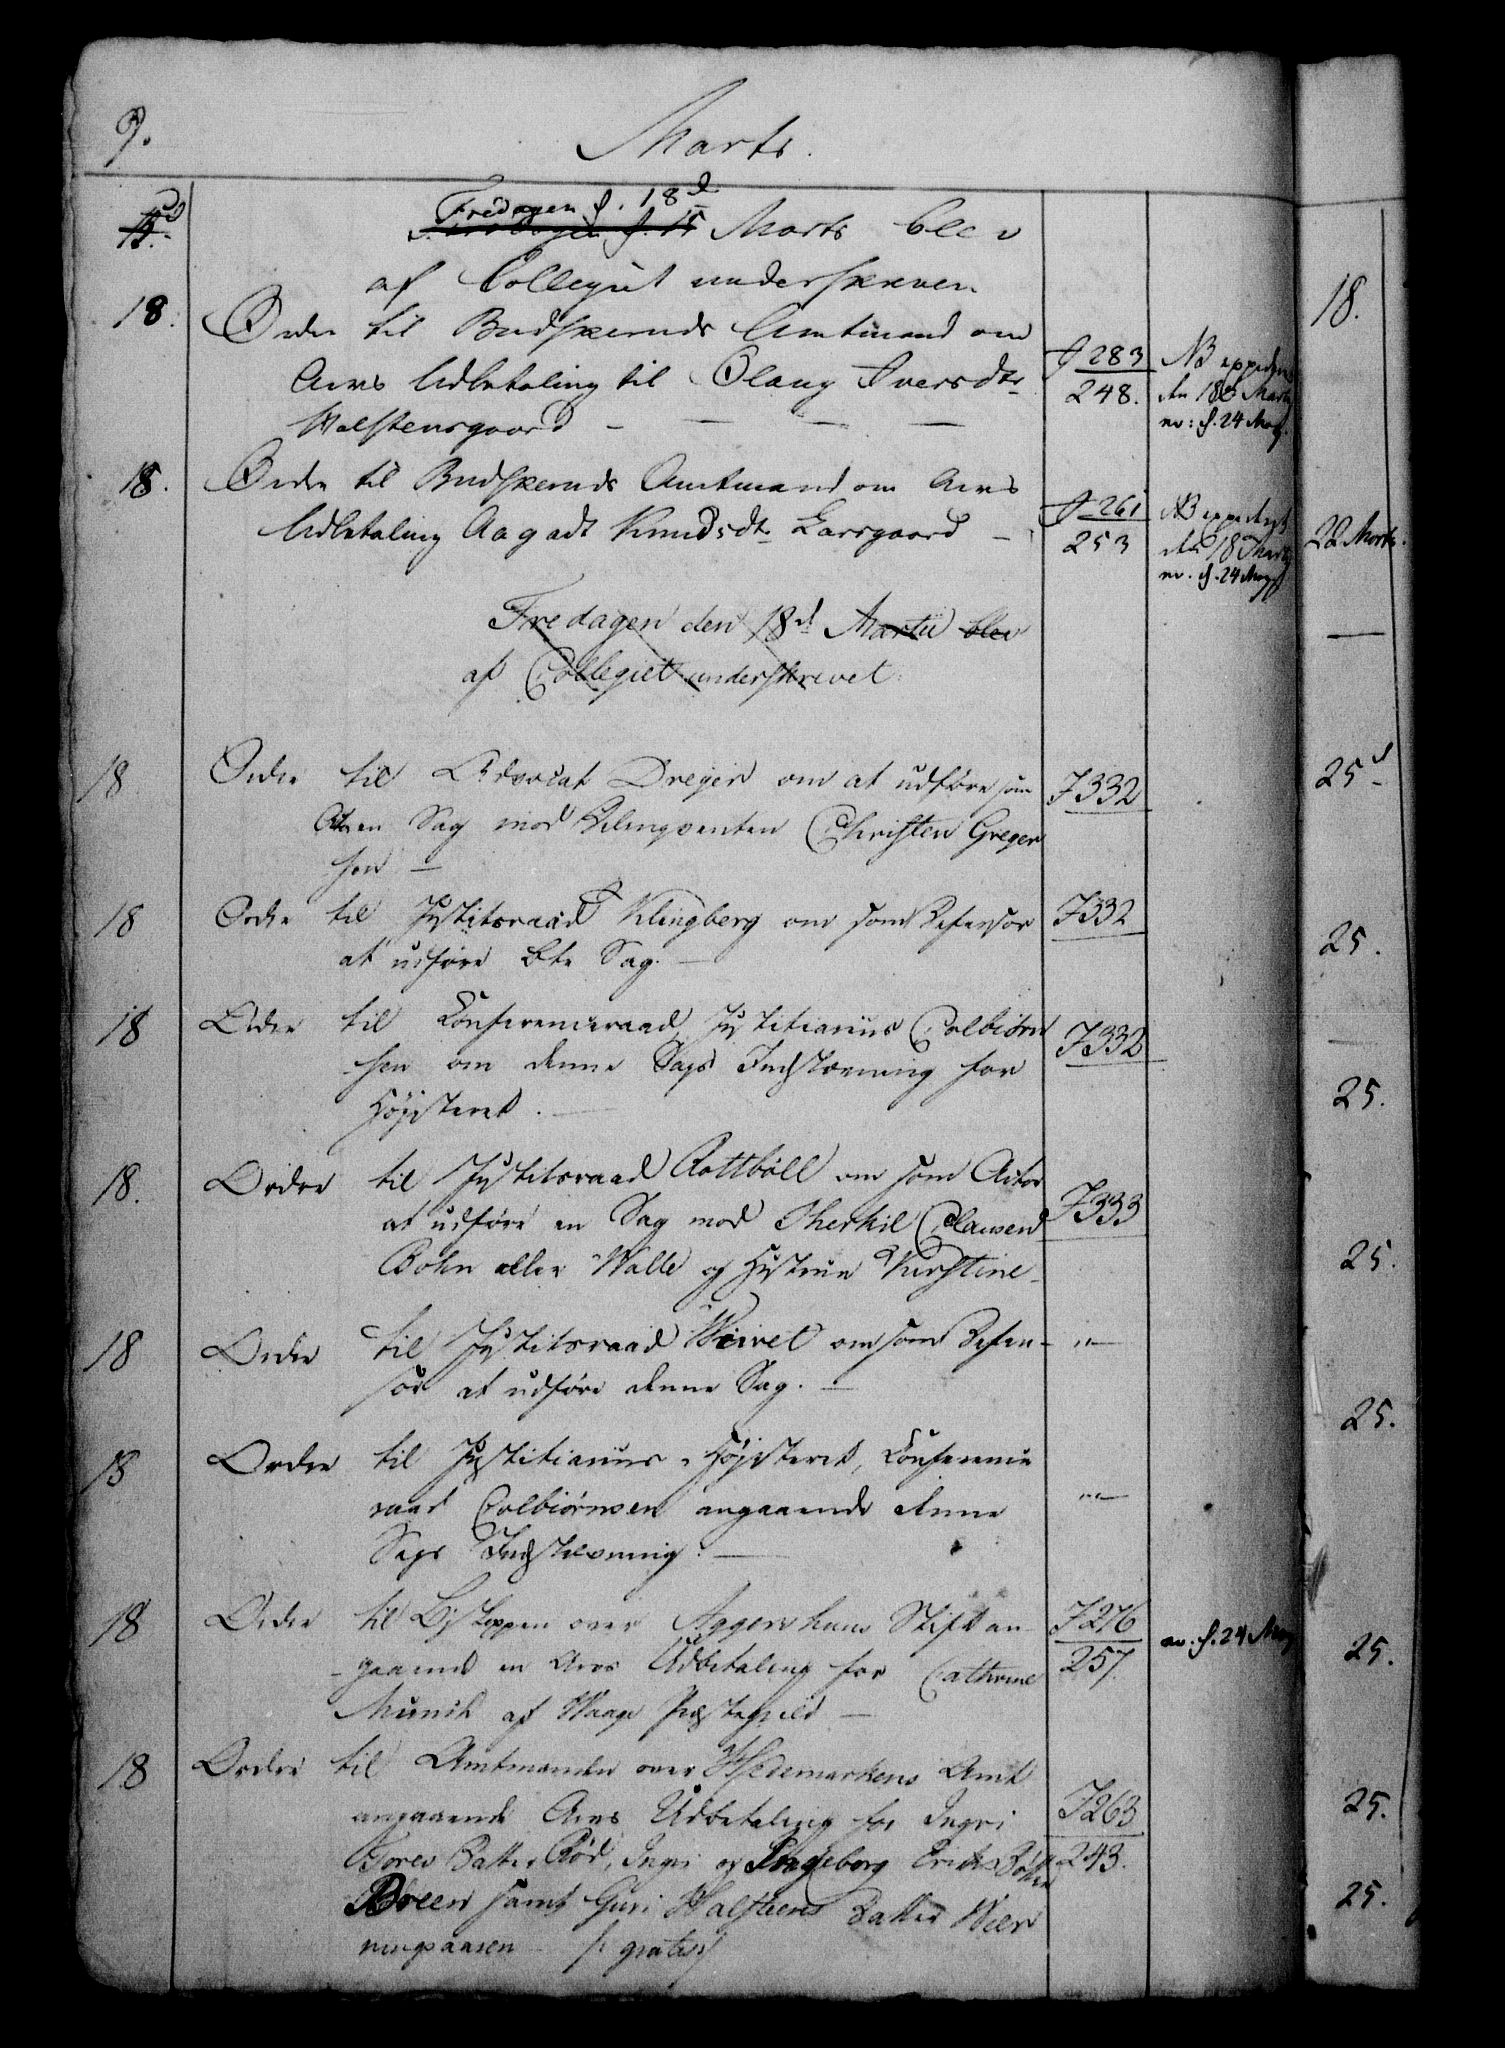 9.
Marts.
Fredagen d. 18d
Marts blev
af Collegiet underskreven
18. Ordre til Budskeruds Amtmand om
Arvs Udbetaling til Olaug Iversdtr
Halstensgaard
J 283
248.
NB expederet
den 18d Marts
d. 24 May.
18. Ordre til Budskeruds Amtmand om Arvs
Udbetaling Aagadt Knudsdtr Larsgaard
J 261
253
NB expederet
den 18 Marts
d. 24 May
Fredagen den 18d Martii blev
af Collegiet underskrevet
18 Ordre til Advocat Dreyer om at udføre som
Actor en Sag mod Delinqventen Christen Greger
sen
J 332
18 Ordre til Justitsraad Klingberg om som Defensor
at udføre bte Sag.
J 332
18 Ordre til Conferenceraad, Justitiarius Colbiørn
sen om denne Sags Indstævning for
Høyesteret.
J 332
18. Ordre til Justitsraad Rottbøll om som Actor
at udføre en Sag mod Therkil Clausen
Bohn eller Walle og Hustrue Kirstine
J 333
18 Ordre til Justitsraad Wivet om som Defen-
sor at udføre denne Sag.
"
18 Ordre til Justitiarius i Høyesteret, Conference
raad Colbiørnsen angaaende denne
Sags Indstævning.
"
18 Ordre til Biskoppen over Aggershuus Stift an-
gaaende en Arvs Udbetaling for Cathrine
Munch af Waage Præstegield
J 276
257.
d. 24 May
18 Ordre til Amtmanden over Hedemarkens Amt
angaaende Arvs Udbetaling for Ingri
Tores Datter Rød, Ingri og Ingeborg Eriks Døttre
Breen samt Guri Halsteens Datter
ningsaasen /: gratis :/
J 263
243.
18.
22 Marts.
25d
25.
25.
25.
25.
25.
25.
25.